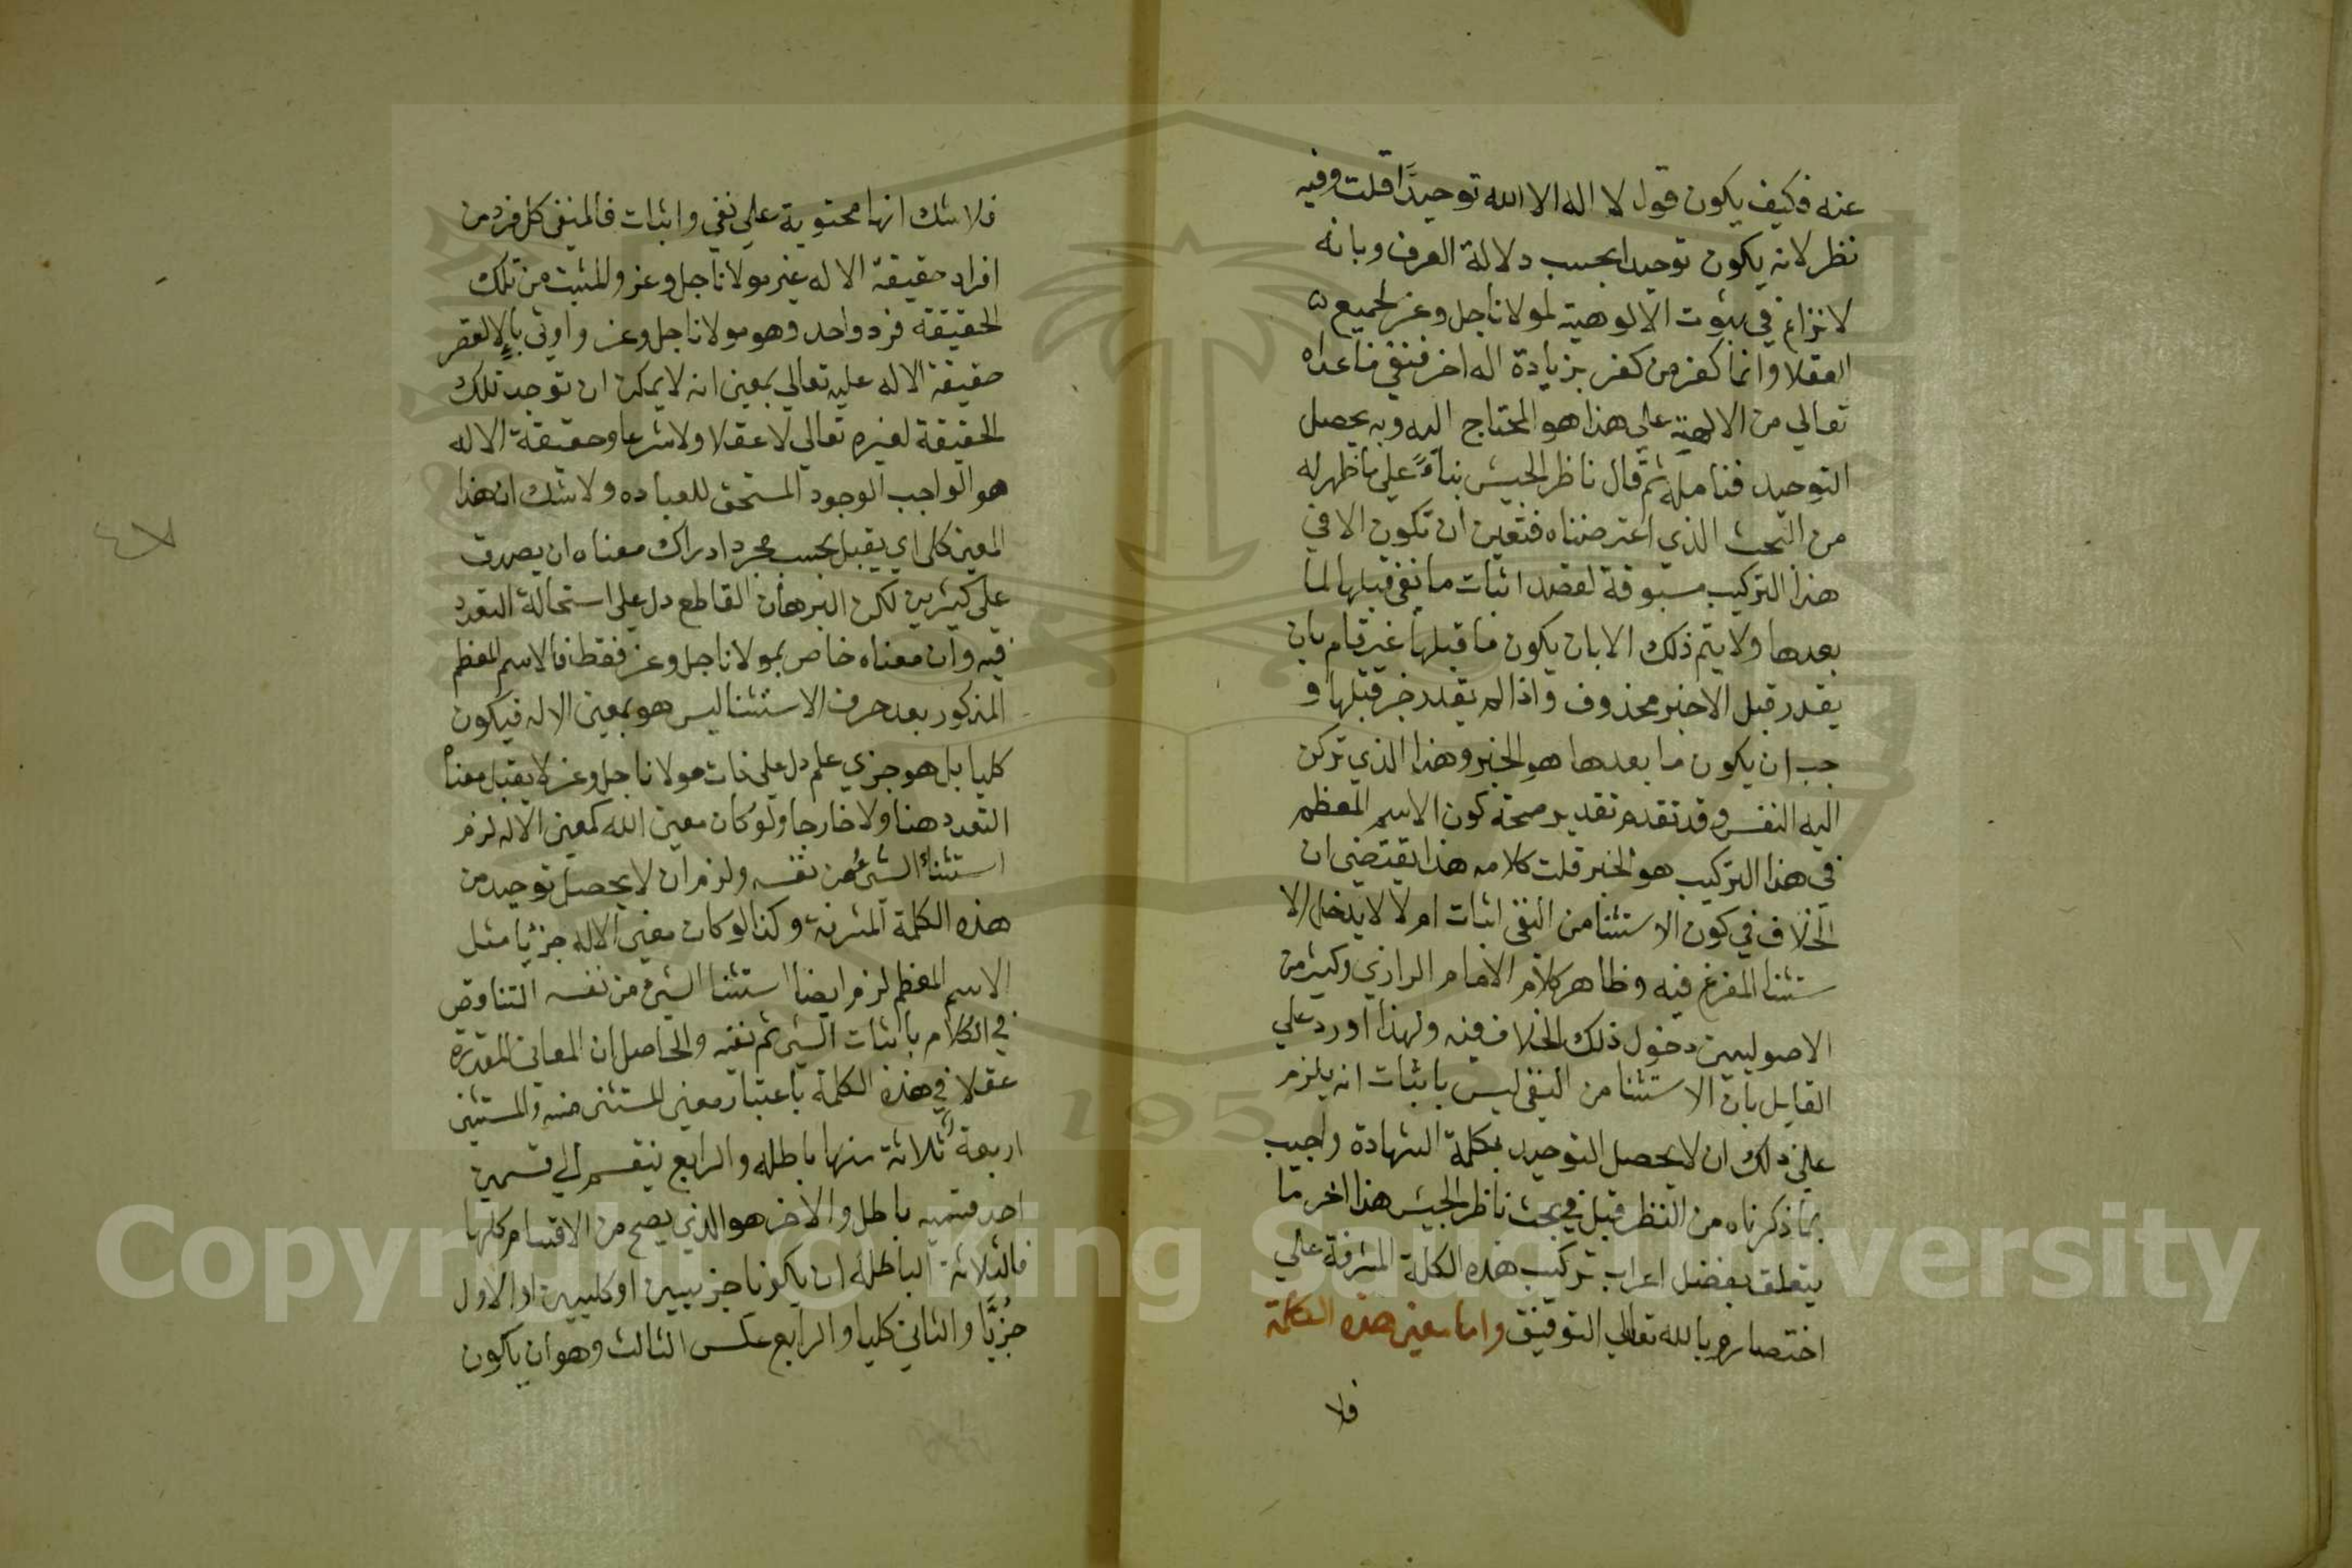 عنه فكيف يكون قول لا اله الا الله توحيدًا قلت وفيه
نظر لانه يكون توحيدا بحسب دلالة العرف وبانه
لا نزاع في ثبوت الالوهية لمولانا جل وعز لجميع
العقلا وانما كفر من كفر بزيادة اله اخر فنفي ما عداه
تعالي من الالهية علي هذا هو المحتاج اليه وبه يحصل
التوحيد فتامله ثم قال ناظر الجيش بناءً علي ما ظهر له
من البحث الذي اعترضناه فتعين ان تكون الا في
هذا التركيب مسبوقة لقصد اثبات ما نفي قبلها لما
بعدها ولا يتم ذلك الا بان يكون ما قبلها غير تام بان
يقدر قبل الا خبر محذوف واذا لم يقدر خبر قبلها و
جب ان يكون ما بعدها هو الخبر وهذا الذي تركن
اليه النفس وقد تقدم تقدير صحة كون الاسم المعظم
في هذا التركيب هو الخبر قلت كلامه هذا يقتضي ان
الخلاف في كون الاستثنا من النفي اثبات ام لا لا يدخل الا
ستثنا المفرغ فيه وظاهر كلام الامام الرازي وكثير من
الاصوليين دخول ذلك الخلاف فيه ولهذا اورد علي
القايل بان الاستثنا من النفي ليس باثبات انه يلزم
علي ذلك ان لا يحصل التوحيد بكلمة الشهادة واجيب
بما ذكرناه من النظر قبل في بحث ناظر الجيش هذا اخر ما
يتعلق بفضل اعراب تركيب هذه الكلمة المشرفة علي
اختصار وبالله تعالي التوفيق واما معني هذه الكلمة
فلا
فلا شك انها محتوية علي نفي واثبات فالمنفي كل فرد من
افراد حقيقة الاله غير مولانا جل وعز والمثبت من تلك
الحقيقة فرد واحد وهو مولانا جل وعز واوتي بالا لقصر
حقيقة الاله عليه تعالي بمعني انه لا يمكن ان توجد تلك
الحقيقة لغيره تعالي لا عقلا ولا شرعا وحقيقة الاله
هو الواجب الوجود المستحق للعباده ولا شك ان هذا
المعني كلي اي يقبل بحسب مجرد ادراك معناه ان يصدق
علي كثيرين لكن البرهان القاطع دل علي استحالة التعدد
فيه وان معناه خاص بمولانا جل وعز فقط فالاسم المعظم
المذكور بعد حرف الاستثنا ليس هو بمعني الاله فيكون
كليا بل هو جزي علم دل علي ذات مولانا جل وعز لا يقبل معناه
التعدد هنا ولا خارجا ولو كان معني الله كمعني الاله لزم
استثناء الشيء من نفسه ولزم ان لا يحصل توحيد من
هذه الكلمة المشرفة وكذا لو كان معني الاله جزئيا مثل
الاسم المعظم لزم ايضا استثنا الشيء من نفسه التناقض
في الكلام باثبات الشيء ثم نفيه والحاصل ان المعاني المقدرة
عقلا في هذه الكلمة باعتبار معني المستثني منه والمستثني
اربعة ثلاثة منها باطله والرابع ينقسم الي قسمين
احد قسميه باطل والاخر هو الذي يصح من الاقسام كلها
فالثلاثة الباطله ان يكونا جزييين او كليين او الاول
جُزيًّا والثاني كليا والرابع عكس الثالث وهو ان يكون
Copyright © King Saud University
1957